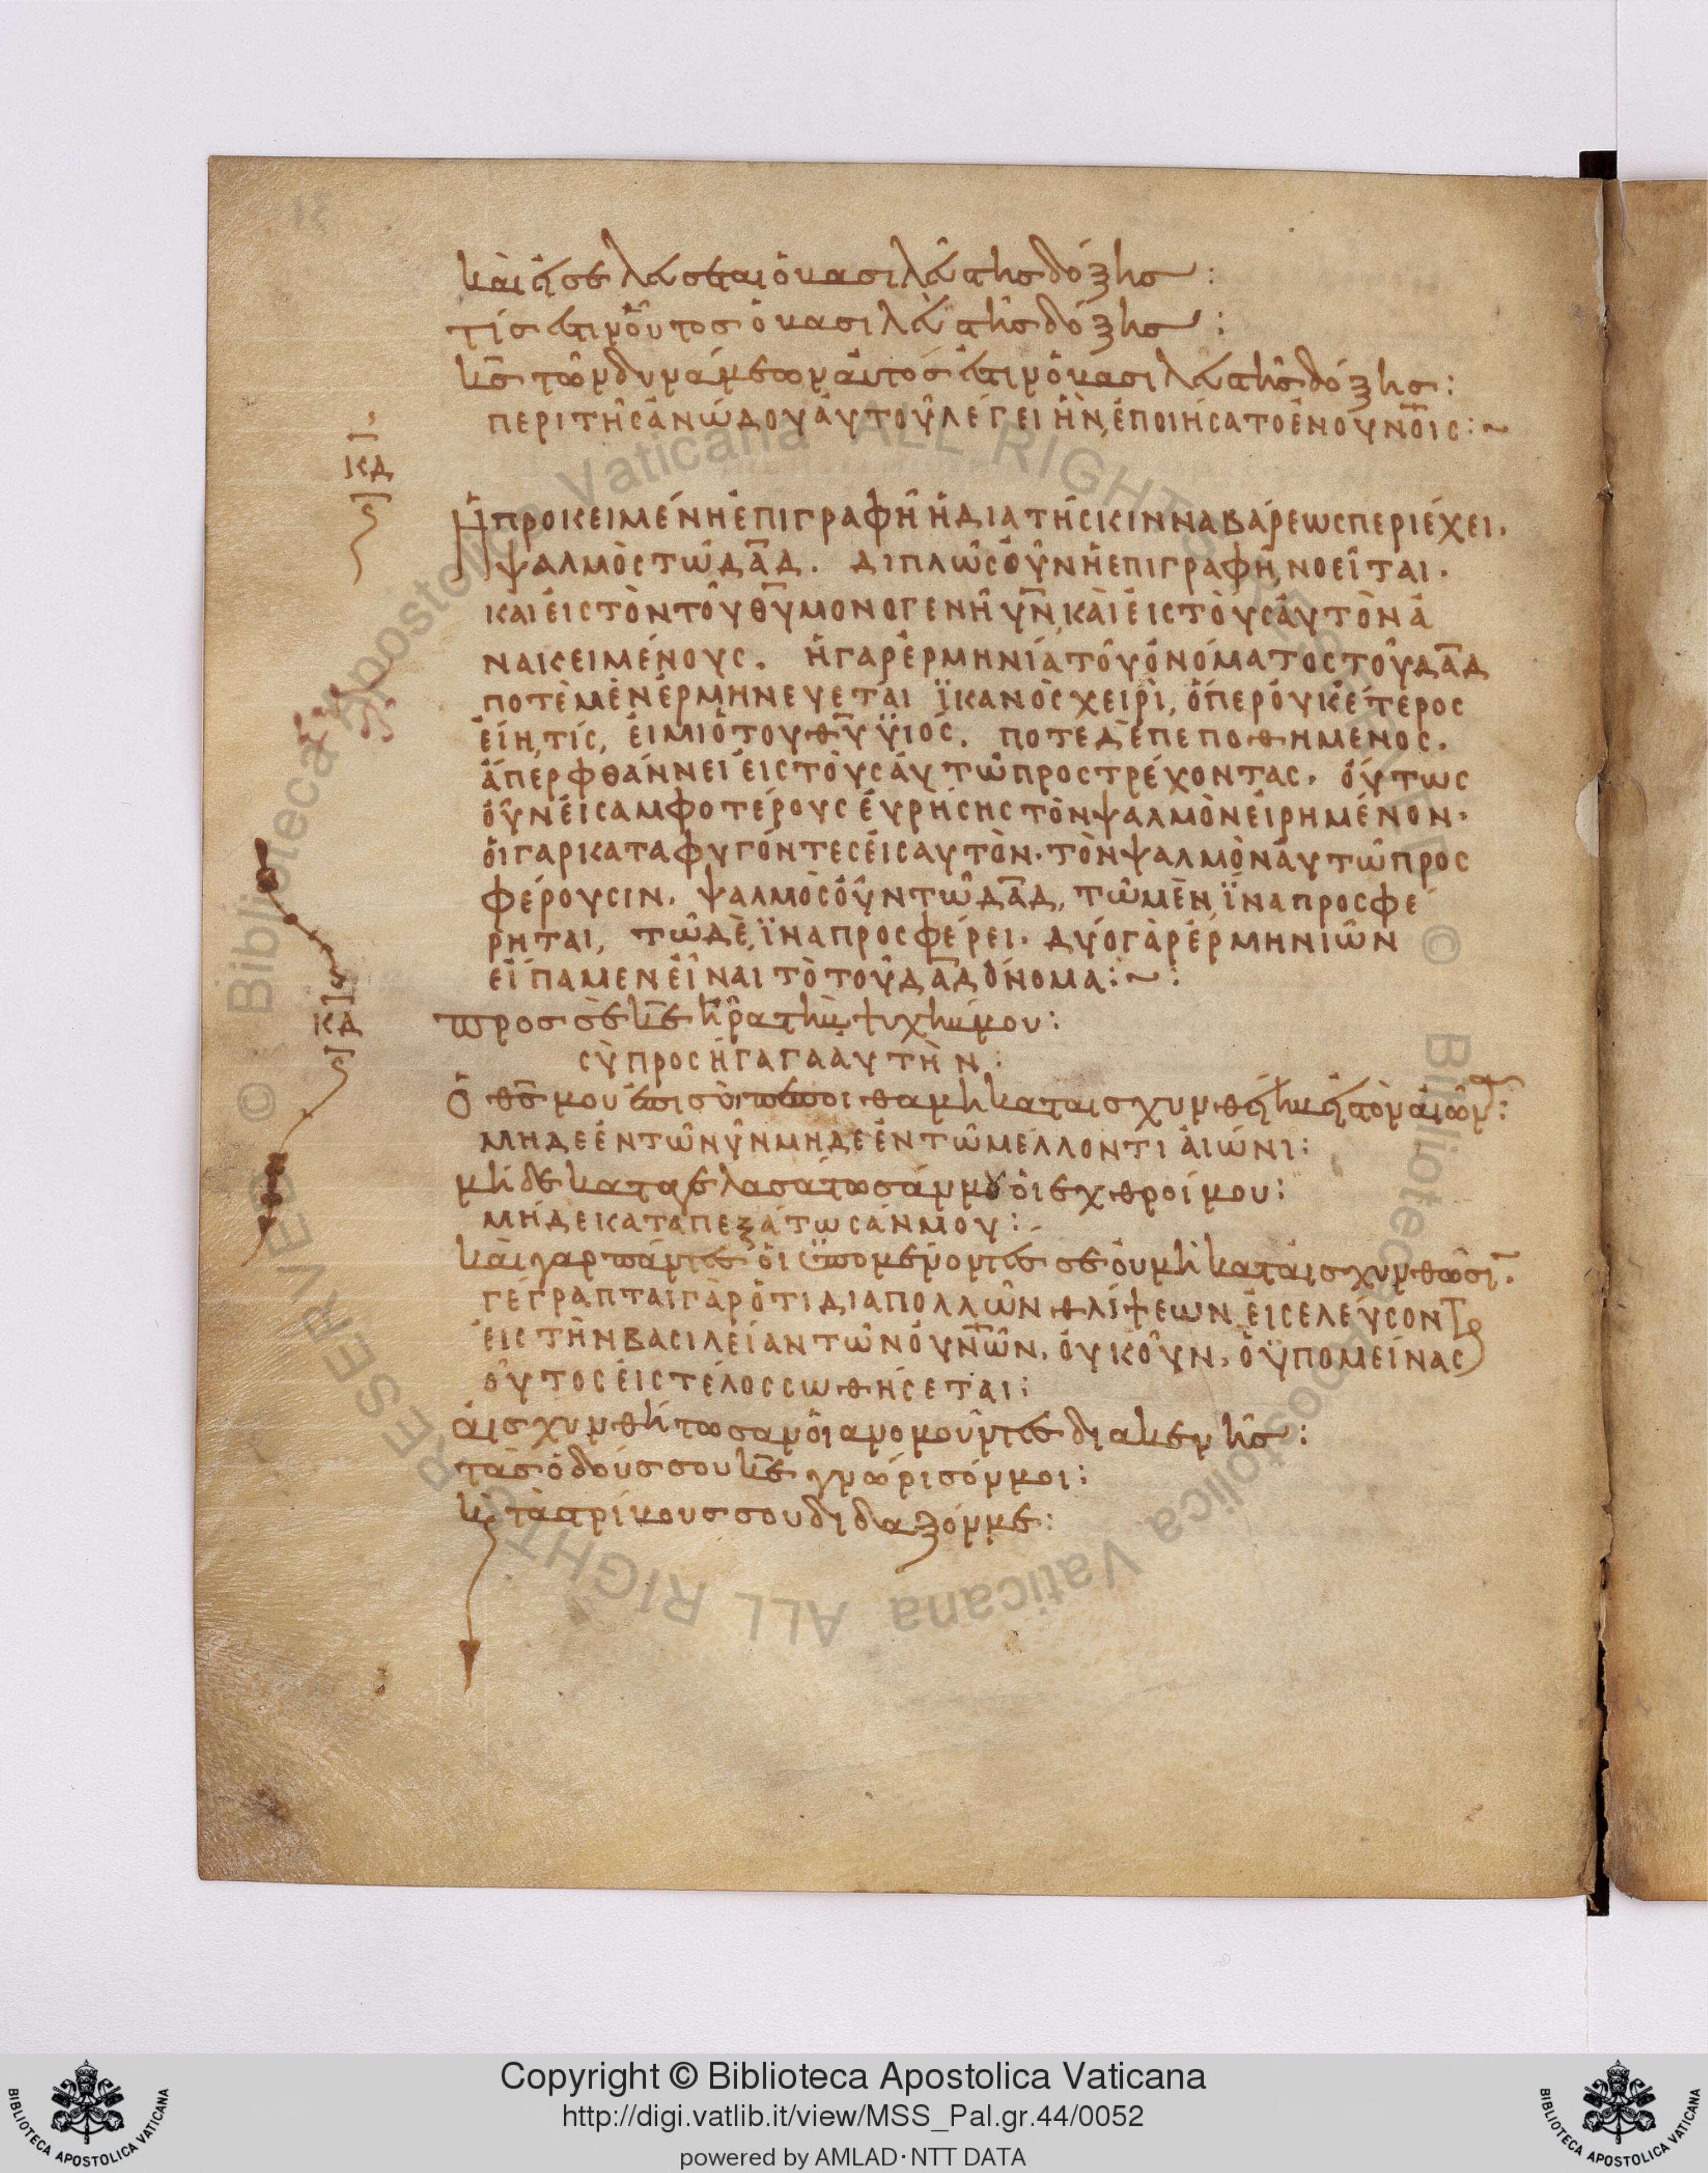 καὶ εἰσελεύσεται ὁ βασιλεὺς τῆς δόξης :
τίς ἐστιν οὗτος ὁ βασιλεὺς τῆς δόξης :
κ̅ς̅ τῶν δυνάμεων αὐτός ἐστιν ὁ βασιλεὺς τῆς δόξης :
περι της ἀνώδου ἀυτοῦ λέγει ἣν ἐποιήσατο ἐν ουν̅οις :~
κδ
Ἡ προκειμένη ἐπιγραφὴ ἡ δια τῆς κινναβάρεως περιέχει.
ψαλμὸς τῶ δ̅α̅δ̅. διπλῶς οὖν ἡ ἐπιγραφὴ νοεῖται.
και ἐις τὸν τοῦ θ̅υ̅ μονογενῆ υ̅ν̅, και ἐις τοὺς ἀυτὸν ἀ
νακειμένους. ἡ γαρ ἑρμηνία τοῦ ὀνόματος τοῦ δ̅α̅δ̅
ποτὲ μὲν ἑρμηνευεται ϊκανὸς χειρὶ, ὅπερ ὀυκ ἕτερος
ἐίη τίς, ἐι μι ὁ του θ̅υ̅ ϋϊός. ποτε δὲ πεποθημενος.
ἅπερ φθάννει ἐις τοὺς ἀυτῶ προστρέχοντας. ὅυτως
ὀῦν ἐις αμφοτέρους ἑυρήσης τὸν ψαλμὸν ἐιρημένον.
ὁι γαρ καταφυγόντες ἐις αυτὸν. τὸν ψαλμὸν ἀυτῶ προς
φέρουσιν. ψαλμὸς ὀῦν τῶ δ̅α̅δ̅, τῶ μὲν, ϊνα προσφέ
ρηται, τῶ δὲ, ϊνα προσφέρει. δύο γὰρ ἑρμηνιῶν
εἴπαμεν εἶναι τὸ τοῦ δ̅α̅δ̅ ὄνομα :~:
κδ
προς σὲ κ̅ε̅ ἦρα τὴν ψυχήν μου :
σὺ προσήγαγα ἀυτὴν :
ὁ θ̅ς̅ μου ἐπι σὺ πέποιθα μη καταισχυνθείην ἐις τὸν ἀιῶν :
μηδε ἐν τῶ νῦν μηδε ἐν τῶ μελλοντι ἀιώνι :
μηδε καταγελασάτωσάν μου ὁι εχθροί μου :
μήδε καταπεξάτωσάν μου :
και γαρ πάντες ὁι ϋπομένοντες σε ὀυ μὴ καταισχυνθῶσι.
γέγραπται γὰρ ὅτι δια πολλῶν θλίψεων ἐισελεύσοντ
ἐις τὴν βασιλείαν τῶν ὀυν̅ῶν. ὀυκ ὀῦν, ὁ ϋπομείνας
οὗτος ἐις τέλος σωθήσεται :
ἀισχυνθήτωσαν ὁι ανομοῦντες διακενῆς :
τὰς ὁδούς σου κ̅ε̅ γνώρισόν μοι :
κ τὰς τρίβους σου διδαξόν με :
Copyright © Biblioteca Apostolica Vaticana
http://digi.vatlib.it/view/MSS_Pal.gr.44/0052
powered by AMLAD·NTT DATA
BIBLIOTECA APOSTOLICA VATICANA
BIBLIOTECA APOSTOLICA VATICANA
© Biblioteca Apostolica Vaticana ALL RIGHTS RESERVED
© Biblioteca Apostolica Vaticana ALL RIGHTS RESERVED